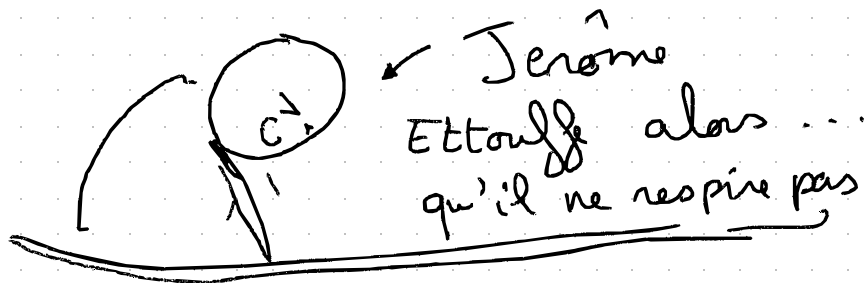 Jerôme
Ettouffe alors ...
qu'il ne respire pas